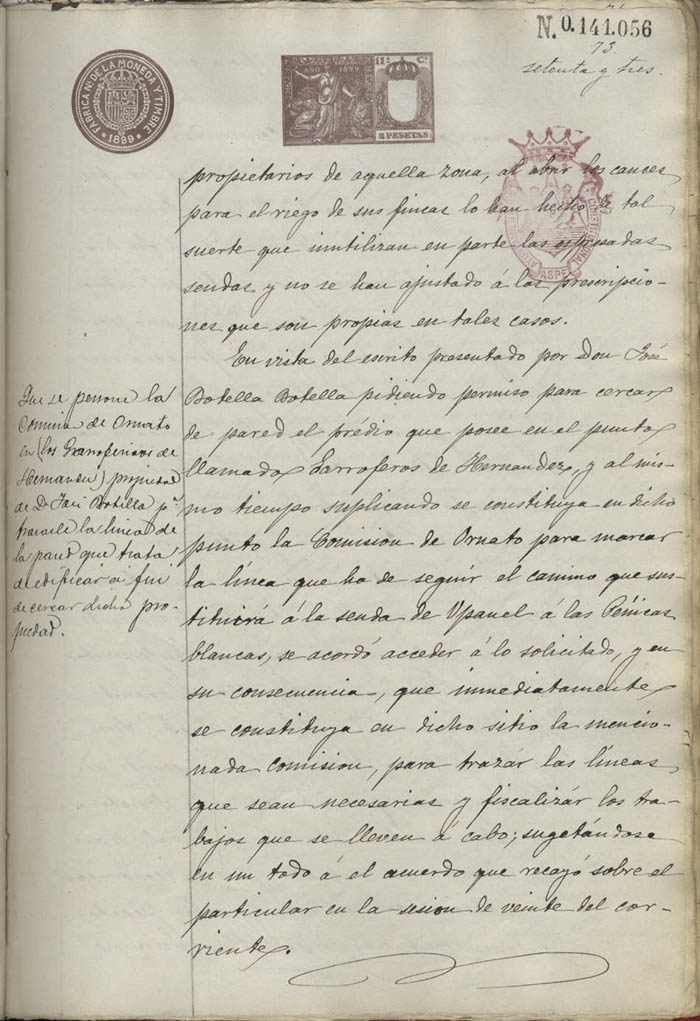 N. 0.141.056
73.
setenta y tres.
FÁBRICA Nl. DE LA MONEDA Y TIMBRE
1899
AÑO 1899
11ª C.
2 PESETAS
CONSTITUCIONAL
ASPE
propietarios de aquella zona, al abrir los cauces
para el riego de sus fincas lo han hecho de tal
suerte que inutilizan en parte las espresadas
sendas y no se han ajustado á las prescripcio-
nes que son propias en tales casos.
En vista del escrito presentado por Don José
Botella Botella pidiendo permiso para cercar
de pared el prédio que posee en el punto
llamado Garroferos de Hernandez, y al mis-
mo tiempo suplicando se constituya en dicho
punto la Comision de Ornato para marcar
la línea que ha de seguir el camino que sus-
tituirá á la senda de Upanel á las Peñicas
blancas, se acordó acceder á lo solicitado, y en
su consecuencia, que inmediatamente
se constituya en dicho sitio la mencio-
nada Comision, para trazár las líneas
que sean necesarias y fiscalizár los tra-
bajos que se lleven á cabo; sugetándose
en un todo á el acuerdo que recayó sobre el
particular en la sesion de veinte del cor-
riente.
Que se persone la
Comision de Ornato
en (los Garrofericos de
Hernandez) propiedad
de Dn José Botella pª
trazarle la línea de
la pared que trata
de edificar á fin
de cercar dicha pro-
piedad.